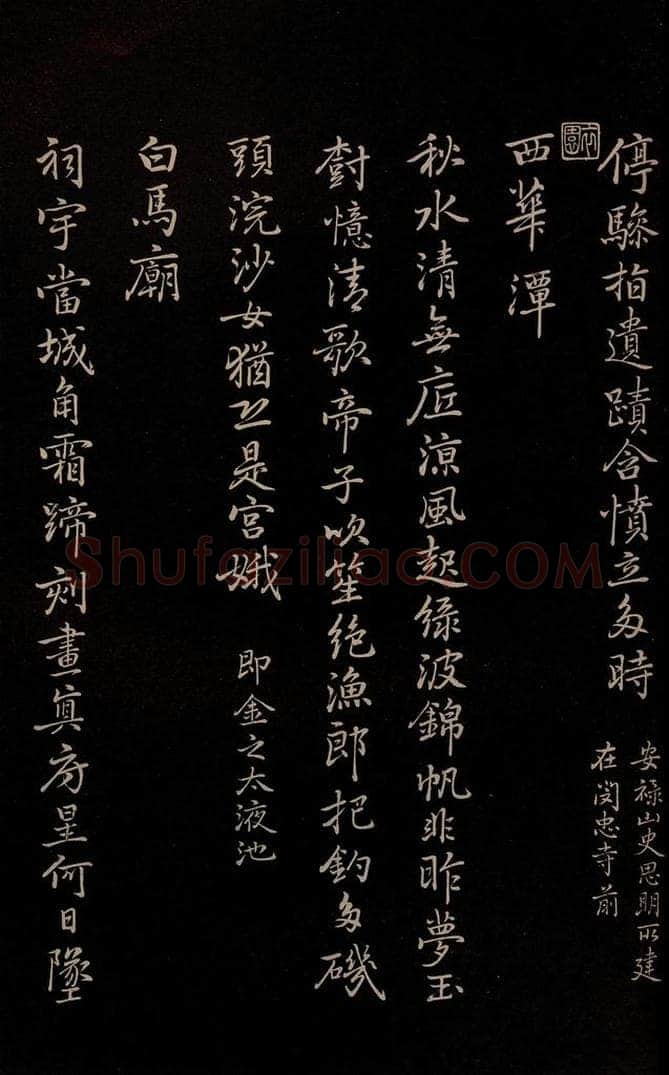 停驂指遺蹟含憤立多時
安禄山史思明所建
在閔忠寺前
西華潭
秋水清無底涼風起綠波錦帆非昨夢玉
樹憶清歌帝子吹笙絕漁郎把釣多磯
頭浣沙女猶恐是宮娥
即金之太液池
白馬廟
祠宇當城角霜蹄刻畫真房星何日墜
Shufaziliao.COM